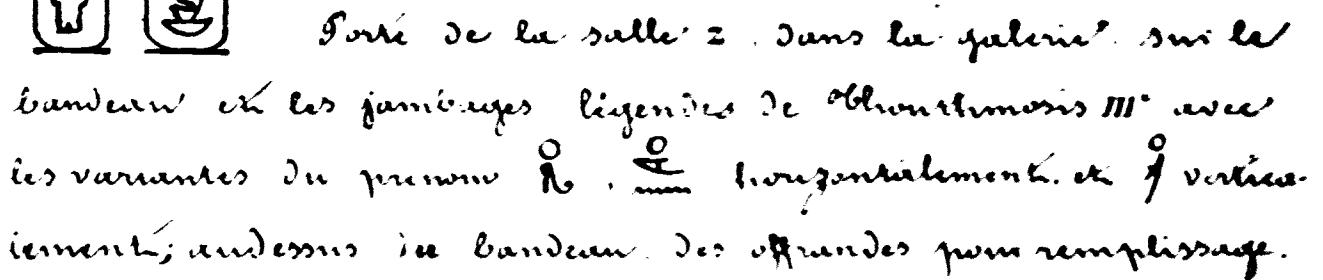 Porte de la salle 2. dans la galerie sur le
bandeau et les jambages légendes de Thouthmosis III. avec
les variantes du prenom horizontalement. et vertica-
lement; audessus du bandeau des offrandes pour remplissage.